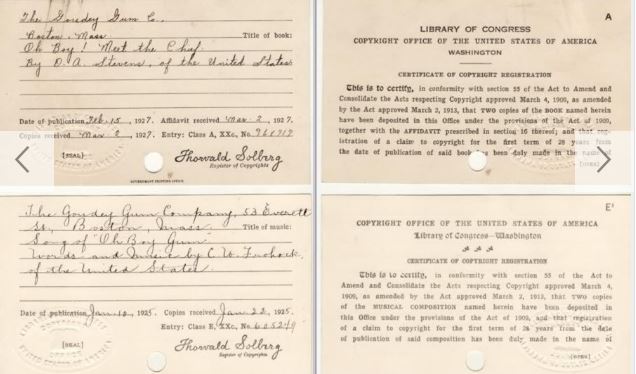 The Goudey Gum Co.,
Boston, Mass.
Title of book:
Oh Boy! Meet the Chief.
By D. A. Stevens, of the United States.
Date of publication Feb. 15, 1927. Affidavit received Mar. 2, 1927.
Copies received Mar. 2, 1927. Entry: Class A, XXc, No.
[SEAL]
Thorvald Solberg
Register of Copyrights
GOVERNMENT PRINTING OFFICE
A
LIBRARY OF CONGRESS
COPYRIGHT OFFICE OF THE UNITED STATES OF AMERICA
WASHINGTON
CERTIFICATE OF COPYRIGHT REGISTRATION
This is to certify, in conformity with section 55 of the Act to Amend and
Consolidate the Acts respecting Copyright approved March 4, 1909, as amended
by the Act approved March 2, 1913, that TWO copies of the BOOK named herein
have been deposited in this Office under the provisions of the Act of 1909,
together with the AFFIDAVIT prescribed in section 16 thereof; and that reg-
istration of a claim to copyright for the first term of 28 years from
the date of publication of said book has been duly made in the name of
[OVER]
The Goudey Gum Company, 53 Everett
St., Boston, Mass.
Title of music:
Song of "Oh Boy Gum"
Words and Music by C. W.
of the United States.
Date of publication Jan. 12, 1925. Copies received Jan. 22, 1925.
Entry: Class E, XXc, No.
[SEAL]
Thorvald Solberg
Register of Copyrights
E'
COPYRIGHT OFFICE OF THE UNITED STATES OF AMERICA
Library of Congress—Washington
CERTIFICATE OF COPYRIGHT REGISTRATION
This is to certify, in conformity with section 55 of the Act to
Amend and Consolidate the Acts respecting Copyright approved March 4,
1909, as amended by the Act approved March 2, 1913, that TWO copies
of the MUSICAL COMPOSITION named herein have been deposited in
this Office under the provisions of the Act of 1909, and that registration
of a claim to copyright for the first term of 28 years from the date
of publication of said composition has been duly made in the name of
[OVER]